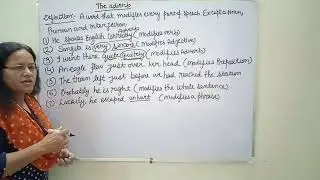 The adverb
Definition - A word that modifies every part of speech Except a Noun,
Pronoun and interjection
Adverb
(1) He speaks English correctly (modifies verb)
(2) Sangita is very sincere (Modifies Adjective)
(3) I went there quite quietly (modifies adverb)
(4) An eagle flew just over her head (Modifies Preposition)
(5) The train left just before we had reached the station
(6) Probably he is right (modifies the whole sentence)
(7) Luckily, he escaped unhurt (modifies a phrase)